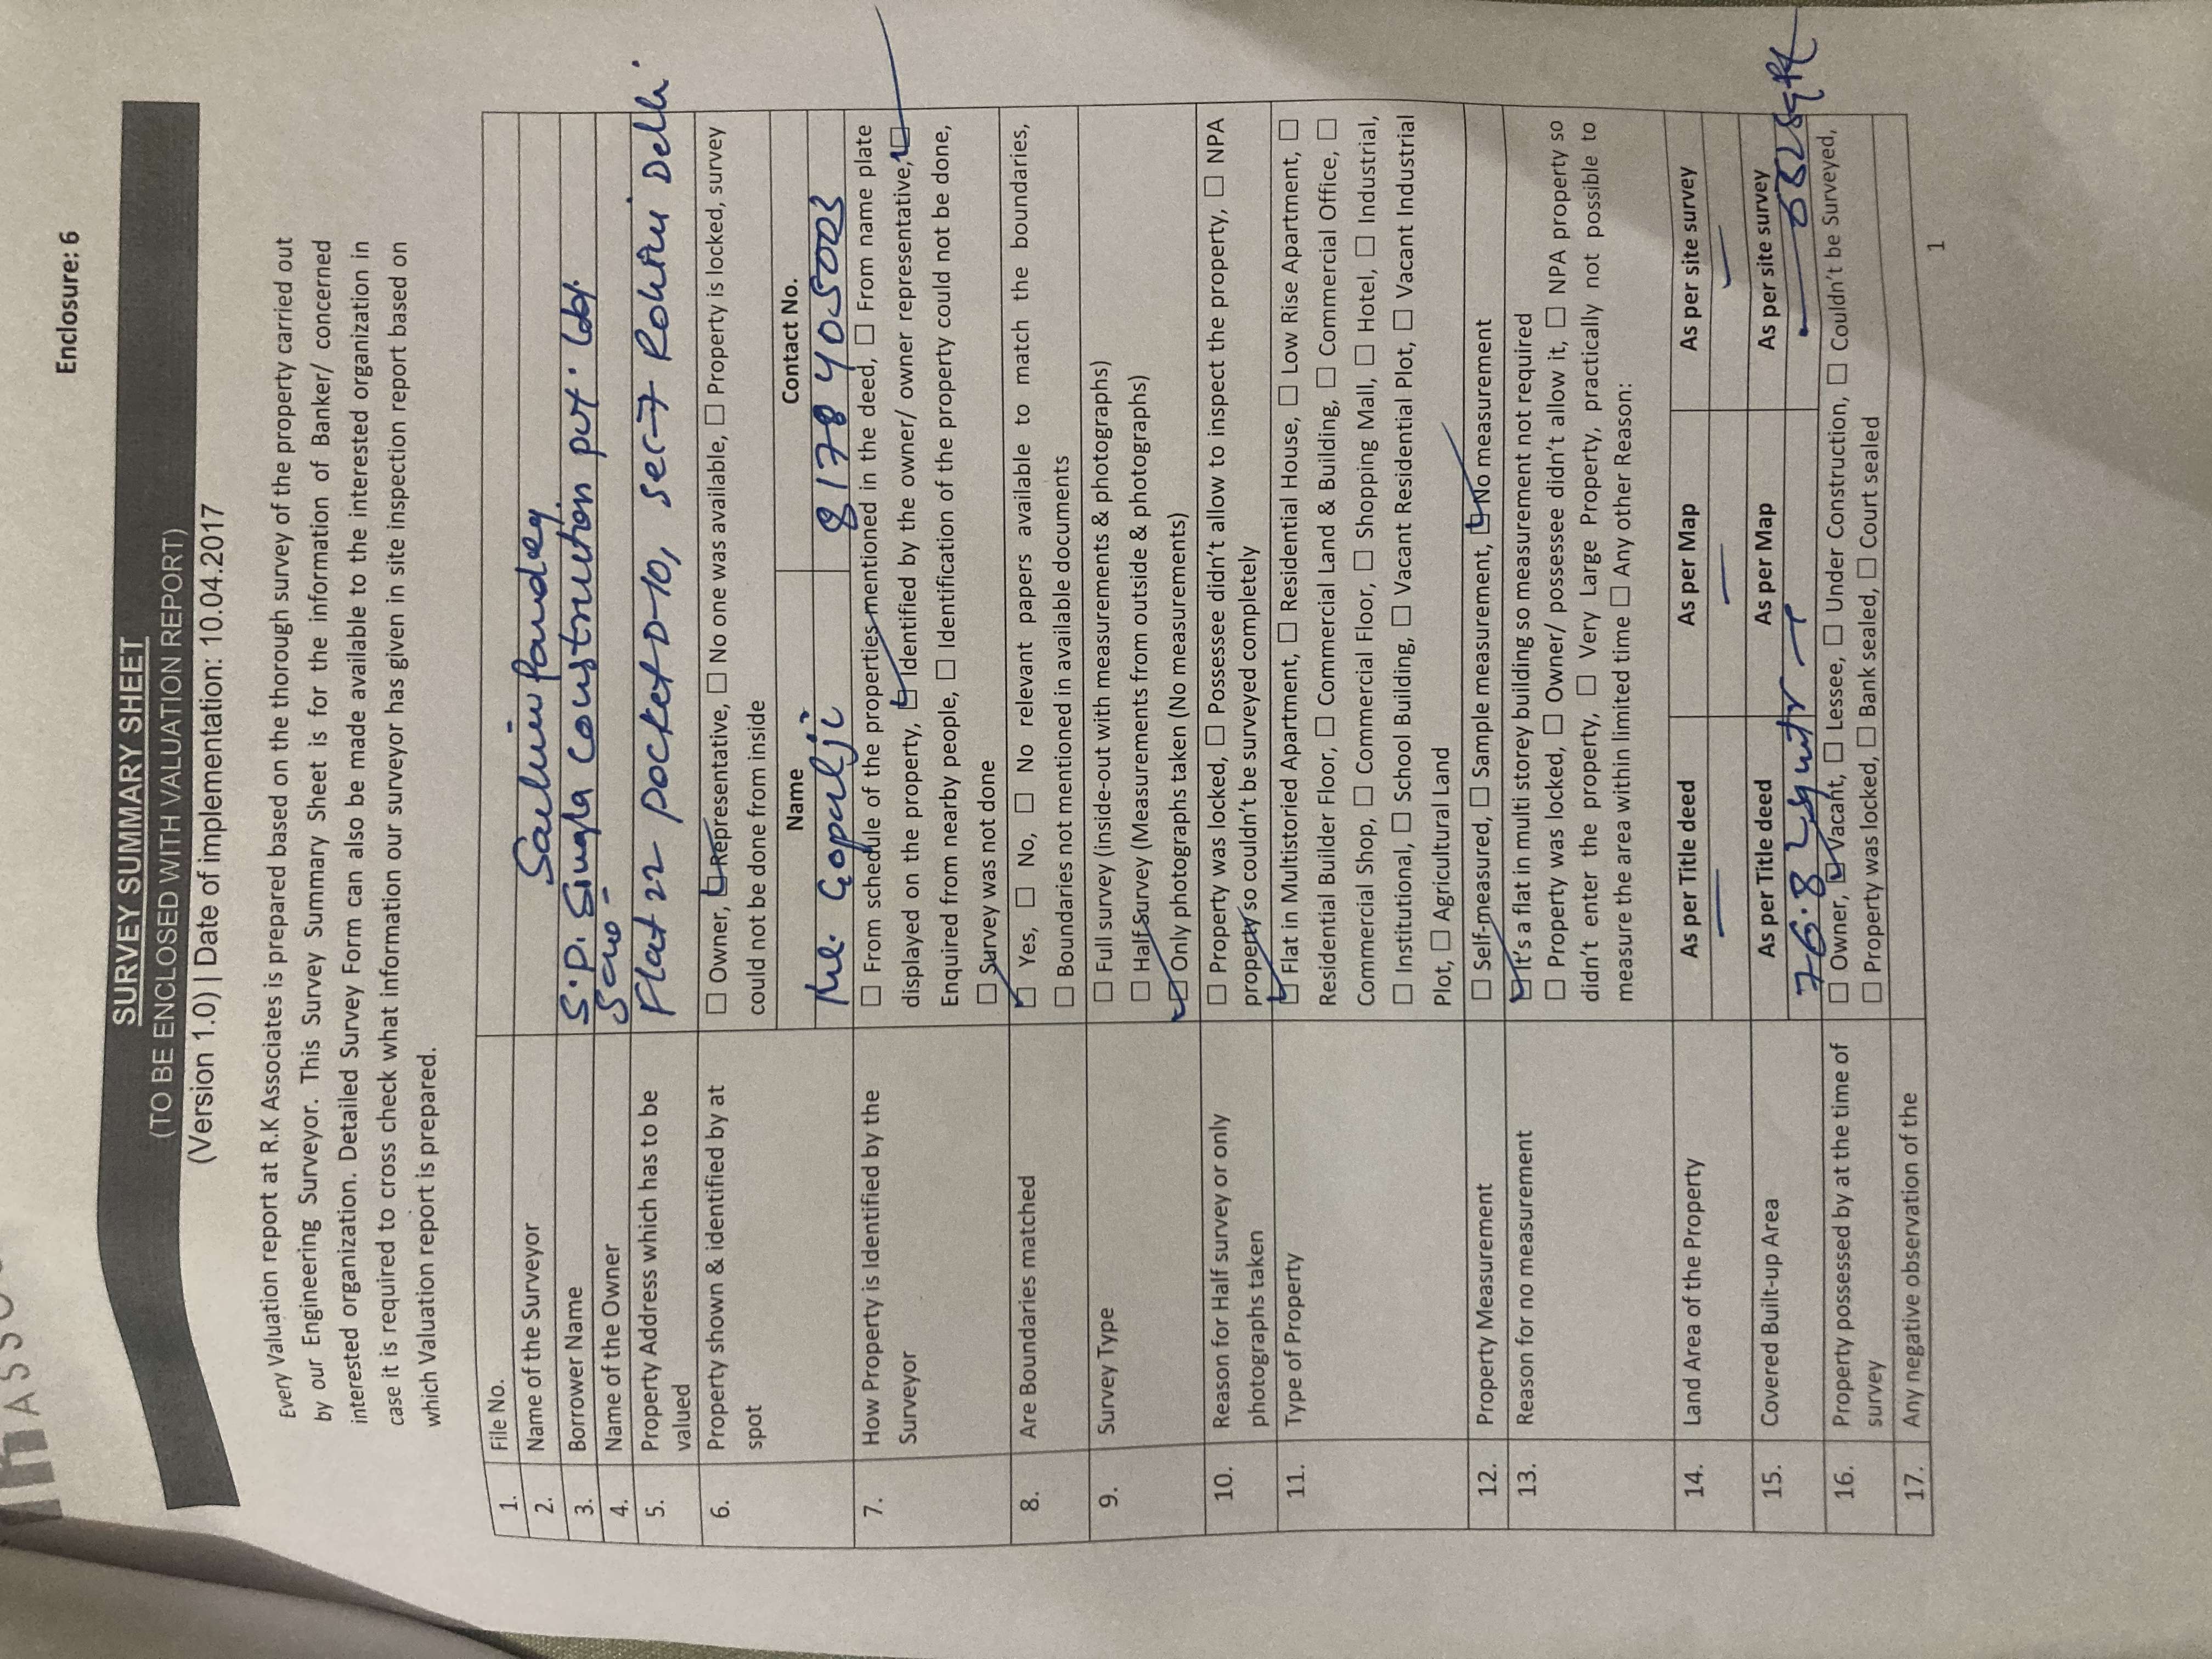 ASSO
Enclosure: 6
SURVEY SUMMARY SHEET
(TO BE ENCLOSED WITH VALUATION REPORT)
(Version 1.0) | Date of implementation: 10.04.2017
Every Valuation report at R.K Associates is prepared based on the thorough survey of the property carried out
by our Engineering Surveyor. This Survey Summary Sheet is for the information of Banker/ concerned
interested organization. Detailed Survey Form can also be made available to the interested organization in
case it is required to cross check what information our surveyor has given in site inspection report based on
which Valuation report is prepared.
1. File No.
2. Name of the Surveyor Sachin Pandey
3. Borrower Name S.P. Singla Construction pvt. Ltd.
4. Name of the Owner
5. Property Address which has to be Flat 22 pocket D-10, sec-7 Rohini Delhi.
valued
6. Property shown & identified by at ☐ Owner, ☑ Representative, ☐ No one was available, ☐ Property is locked, survey
spot could not be done from inside
Name Contact No.
Mr. Gopalji 8178405003
7. How Property is Identified by the ☐ From schedule of the properties mentioned in the deed, ☐ From name plate
Surveyor displayed on the property, ☑ Identified by the owner/ owner representative, ☑
Enquired from nearby people, ☐ Identification of the property could not be done,
☐ Survey was not done
8. Are Boundaries matched ☑ Yes, ☐ No, ☐ No relevant papers available to match the boundaries,
☐ Boundaries not mentioned in available documents
9. Survey Type ☐ Full survey (inside-out with measurements & photographs)
☐ Half Survey (Measurements from outside & photographs)
☑ Only photographs taken (No measurements)
10. Reason for Half survey or only ☐ Property was locked, ☐ Possessee didn't allow to inspect the property, ☐ NPA
photographs taken property so couldn't be surveyed completely
11. Type of Property ☑ Flat in Multistoried Apartment, ☐ Residential House, ☐ Low Rise Apartment, ☐
Residential Builder Floor, ☐ Commercial Land & Building, ☐ Commercial Office, ☐
Commercial Shop, ☐ Commercial Floor, ☐ Shopping Mall, ☐ Hotel, ☐ Industrial,
☐ Institutional, ☐ School Building, ☐ Vacant Residential Plot, ☐ Vacant Industrial
Plot, ☐ Agricultural Land
12. Property Measurement ☐ Self-measured, ☐ Sample measurement, ☑ No measurement
13. Reason for no measurement ☑ It's a flat in multi storey building so measurement not required
☐ Property was locked, ☐ Owner/ possessee didn't allow it, ☐ NPA property so
didn't enter the property, ☐ Very Large Property, practically not possible to
measure the area within limited time ☐ Any other Reason:
14. Land Area of the Property As per Title deed As per Map As per site survey
— — —
15. Covered Built-up Area As per Title deed As per Map As per site survey
76.82 sqmtr — 832 sqft
16. Property possessed by at the time of ☐ Owner, ☑ Vacant, ☐ Lessee, ☐ Under Construction, ☐ Couldn't be Surveyed,
survey ☐ Property was locked, ☐ Bank sealed, ☐ Court sealed
17. Any negative observation of the
1